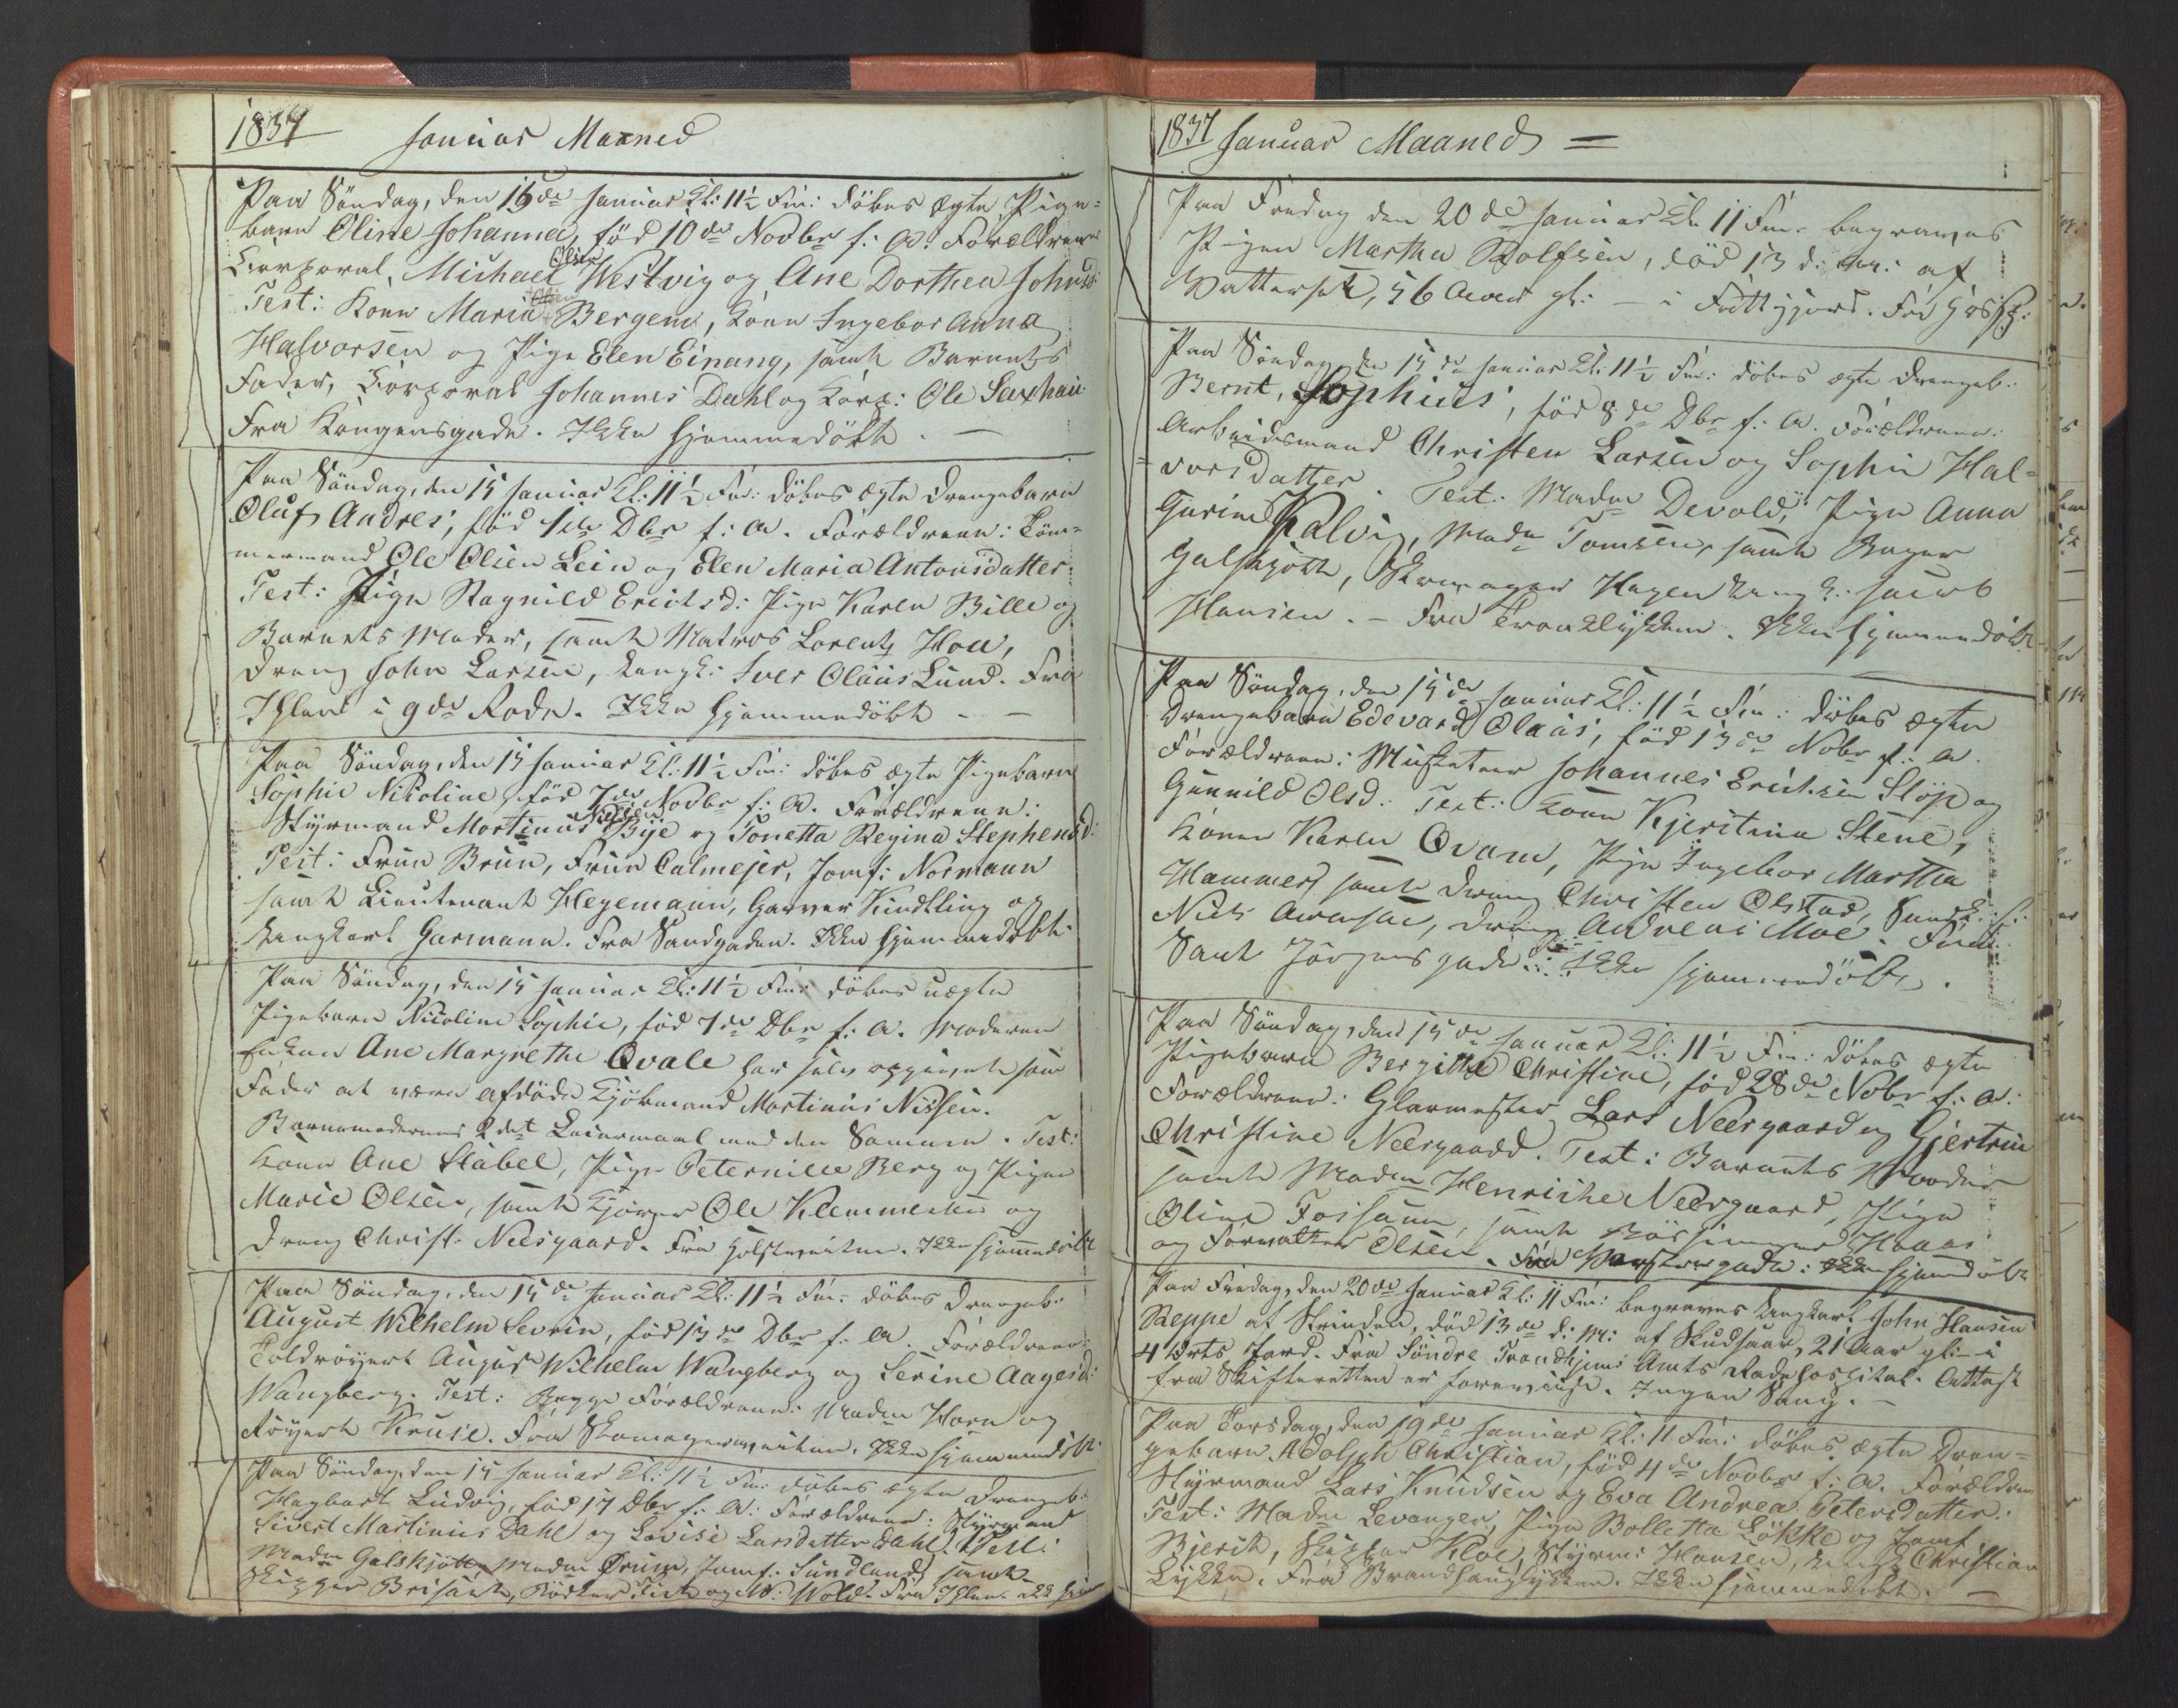 1837 Januar Maaned
Paa Söndag, den 15de Januar Kl: 11½ Fm: döbes ægte Pige-
barn Oline Johanna, föd 10de Novbr f: A. Forældrene
Corporal Michael Olsen Westvig og Ane Dorthea Johnsd:
Test: Kone Maria Olsen Bergem, Kone Ingebor Anna
Halvorsen og Pige Elen Einang, samt Barnets
Fader, Corporal Johannes Dahl og Corp: Ole Saxhau
Fra Kongensgade. Ikke hjemmedöbt. —
Paa Söndag, den 15 Januar Kl: 11½ Fm: döbes ægte Drengebarn
Oluf Andres, föd 1ste Dbr f: A. Forældrene: Töm-
mermand Ole Olsen Lein og Elen Maria Antonsdatter.
Test: Pige Ragnild Erichsd: Pige Karen Bille og
Barnets Moder, samt Matros Lorentz Hou,
Dreng John Larsen, Ungk: Iver Olaus Lund. Fra
Ihlen i 9de Rode. Ikke hjemmedöbt. —
Paa Söndag, den 15 Januar Kl: 11½ Fm: döbes ægte Pigebarn
Sophie Nicoline, föd 7de Novbr f: A. Forældrene:
Styrmand Mortinus Nielsen Bye og Tonetta Regina Stephensd:
Test: Frue Brun, Frue Calmejer, Jomf: Normann
samt Lieutenant Hegemann, Garver Kindtling og
Ungkarl Garmann. Fra Sandgaden. Ikke hjemmedöbt.
Paa Söndag, den 15 Januar Kl: 11½ Fm: döbes uægte
Pigebarn Nicoline Sophie, föd 7de Dbr f: A. Moderen
Enken Ane Margrethe Qvale har selv opgivet som
Fader at være afdöde Kjöbmand Martinus Nissen.
Barnemoderens 2det Leiermaal med den Samme. Test:
Kone Ane Stabel, Pige Peternille Berg og Pigen
Marie Olsen, samt Ole Klemmetsen og
Dreng Christ: Neergaard. Fra Ikke hjemmedöbt
Paa Söndag, den 15de Januar Kl: 11½ Fm: döbes Drengeb:
August Wilhelm Severin, föd 13de Dbr f: A. Forældrene:
Toldröyert August Wilhelm Wangberg og Serine Aagesd:
Wangberg. Test: Begge Forældrene. Madm Horn og
Röyert Kruse. Fra Skomagerveiten. Ikke hjemmedöbt.
Paa Söndag, den 15 Januar Kl: 11½ Fm: döbes ægte Drengeb:
Hagbart Ludvig, föd 17 Dbr f: A: Forældrene: Styrmand
Sivert Martinus Dahl og Lovise Larsdatter Dahl. Test:
Madm Galskjött, Madm Örum, Jomf: Sundland, samt
Skipper Brisant, Bödker og M: Wold. Fra Ihlen. ikk hje
1837 Januar Maaned =
Paa Fredag den 20de Januar Kl. 11 Fm: begraves
Pigen Martha Rolfsen, död 13 d: M: af
Vattersot, 56 Aar gl: — i Frittjord. Fra
Paa Söndag den 15de Januar Kl: 11½ Fm: döbes ægte Drengeb:
Bernt Sophius, föd 8de Dbr f: A. Forældrene:
Arbeidsmand Christen Larsen og Sophie Hal-
vorsdatter. Test: Madm Devold, Pige Anna
Gurine Kalvig, Madm Tomsen, samt Bager
Galskjött, Skomager Hagen Ungk: Jacob
Hansen. — Fra Ikke hjemmedöbt.
Paa Söndag, den 15de Januar Kl: 11½ Fm: döbes ægte
Drengebarn Edevard Olaus, föd 13de Nobr f: A.
Forældrene: Musketeer Johannes Erichsen Stöp og
Gunnild Olsd: Test: Kone Kjerstina Stene,
Konen Karen Qvam, Pige Ingebor Martha
Hammer, samt Dreng Christen Olstad,
Niels Dreng Andreas Moe. Fra
Sant Jörgensgade. Ikke hjemmedöbt.
Paa Söndag, den 15de Januar Kl: 11½ Fm: döbes ægte
Pigebarn Bergitte Christine, föd 28de Nobr f: A:
Forældrene: Glarmester Lars Neergaard og Gjertrue
Christine Neergaard. Test: Barnets Moder
samt Madm Henriche Neergaard, Pige
Oline Fossum, samt Haar
og Forvalter Olsen. Fra Ikke hjemmedöbt
Paa Fredag, den 20de Januar Kl: 11 Fm: begraves Ungkarl John Hansen
Reppe af Strinden, död 13de d: M: af Skudsaar, 21 Aar gl: — i
4 Orts Jord. Fra Söndre Trondhjems Amts Radehospital. Attest
fra Skifteretten er foreviist. Ingen Sang. —
Paa Torsdag, den 19de Januar Kl: 11 Fm: döbes ægte Dren-
gebarn Adolph Christian, föd 4de Novbr f: A. Forældrene
Styrmand Lars Knudsen og Eva Andrea Petersdatter.
Test: Madm Levanger, Pige Bolletta Lökke og Jomf
Bjerch, Skipper Kloe, Styrm: Hansen, Ungk Christian
Lykke. Fra Ikke hjemmedöbt. —